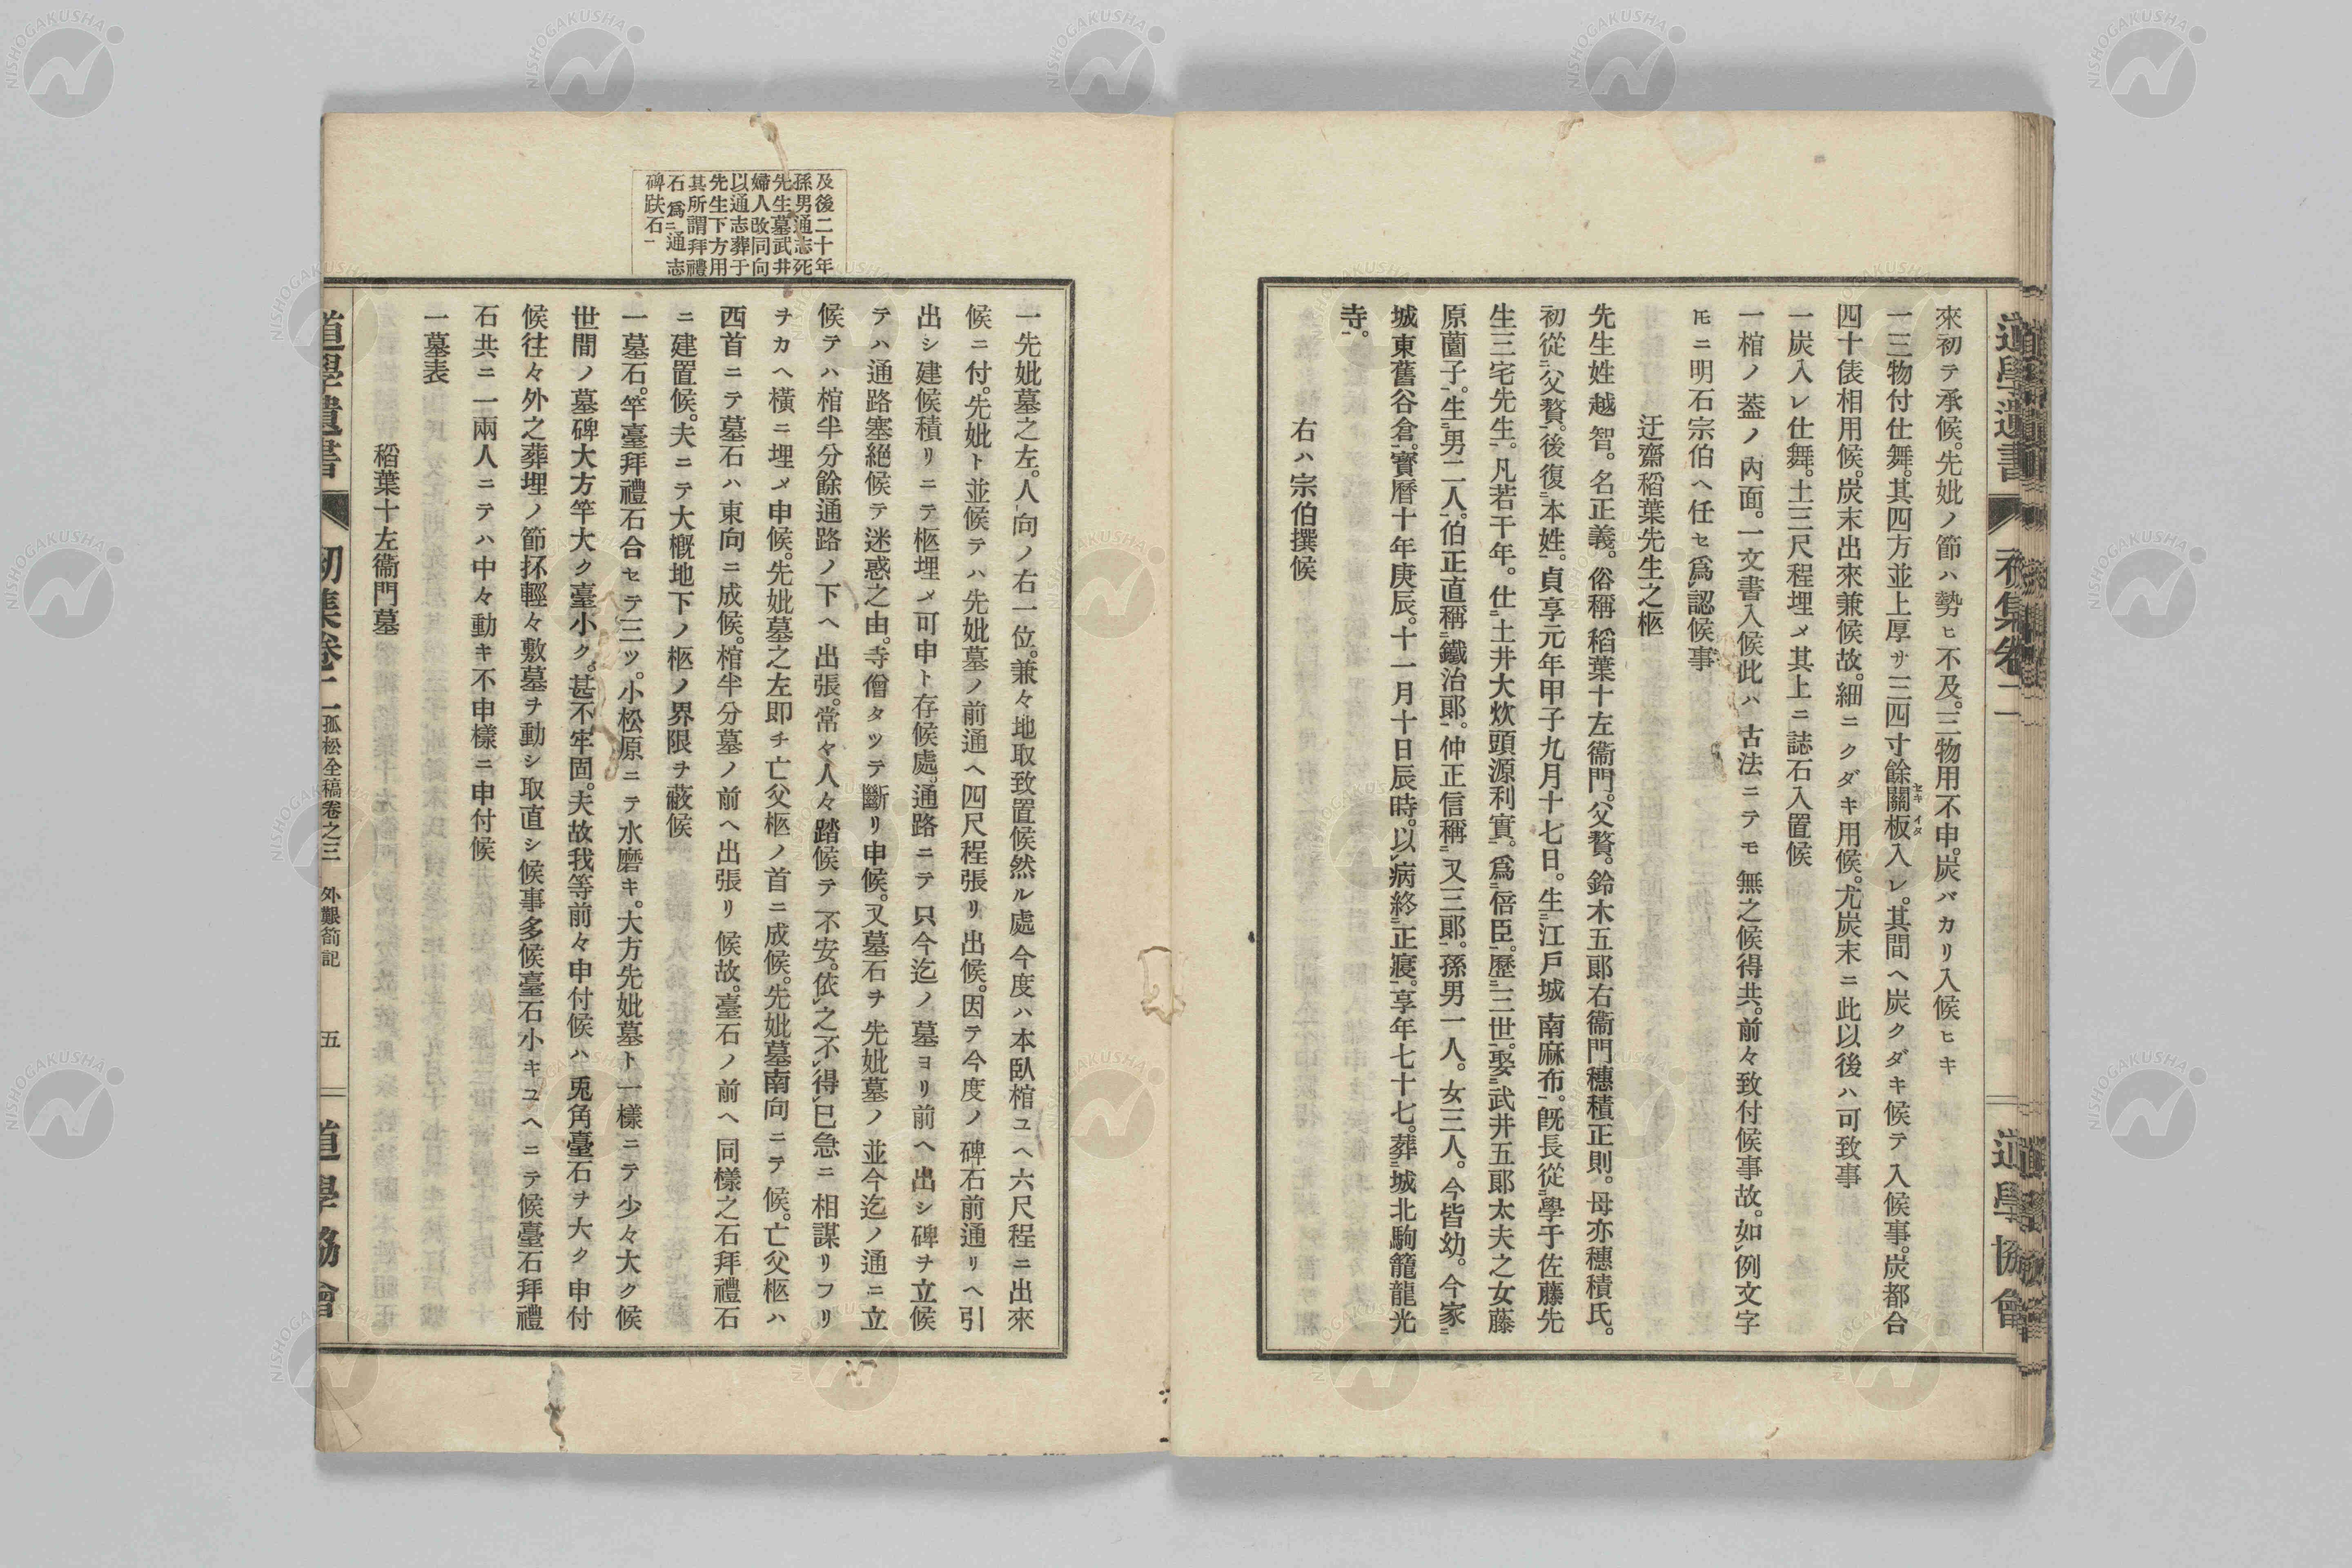 來初テ承候。先妣ノ節ハ勢ヒ不及。三物用不申。炭バカリ入候ヒキ
一三物付仕舞。其四方並上厚サ三四寸餘關板入レ。其間ヘ炭クダキ候テ入候事。炭都合
セキイタ
四十俵相用候。炭末出來兼候故。細ニクダキ用候。尤炭末ニ此以後ハ可致事
一炭入レ仕舞。土三尺程埋メ其上ニ誌石入置候
一棺ノ葢ノ內面。一文書入候此ハ古法ニテモ無之候得共。前々致付候事故。如例文字
㽵ニ明石宗伯ヘ任セ爲認候事
迂齋稻葉先生之柩
先生姓越智。名正義。俗稱稻葉十左衞門。父贅。鈴木五郞右衞門穗積正則。母亦穗積氏。
初從父贅。後復本姓。貞享元年甲子九月十七日。生江戶城南麻布。旣長從學于佐藤先
生三宅先生。凡若干年。仕土井大炊頭源利實。爲倍臣。歷三世。娶武井五郞太夫之女藤
原薗子。生男二人。伯正直稱鐵治郞。仲正信稱又三郞。孫男一人。女三人。今皆幼。今家
城東舊谷倉。寳曆十年庚辰。十一月十日辰時。以病終正寢。享年七十七。葬城北駒籠龍光
寺。
右ハ宗伯撰候
道學遺書 初集卷二 道學協會
及後二十年
孫男通志死
先生墓武井
婦人改同向
以通志葬于
先生下方用
其所謂拜禮
石爲ニ通志
碑趺石一
一先妣墓之左。人向ノ右一位。兼々地取致置候然ル處今度ハ本臥棺ユヘ六尺程ニ出來
候ニ付。先妣ト並候テハ先妣墓ノ前通ヘ四尺程張リ出候。因テ今度ノ碑石前通リヘ引
出シ建候積リニテ柩埋メ可申ト存候處。通路ニテ只今迄ノ墓ヨリ前ヘ出シ碑ヲ立候
テハ通路塞絕候テ迷惑之由。寺僧タツテ斷リ申候。又墓石ヲ先妣墓ノ並今迄ノ通ニ立
候テハ棺半分餘通路ノ下ヘ出張。常々人々踏候テ不安。依之不得已急ニ相謀リフリ
ヲカヘ橫ニ埋メ申候。先妣墓之左即チ亡父柩ノ首ニ成候。先妣墓南向ニテ候。亡父柩ハ
西首ニテ墓石ハ東向ニ成候。棺半分墓ノ前ヘ出張リ候故。臺石ノ前ヘ同樣之石拜禮石
ニ建置候。夫ニテ大槪地下ノ柩ノ界限ヲ蔽候
一墓石。竿臺拜禮石合セテ三ツ。小松原ニテ水磨キ。大方先妣墓ト一樣ニテ少々大ク候
世間ノ墓碑大方竿大ク臺小ク。甚不牢固。夫故我等前々申付候ハ兎角臺石ヲ大ク申付
候往々外之葬埋ノ節抔輕々敷墓ヲ動シ取直シ候事多候臺石小キユヘニテ候臺石拜禮
石共ニ一兩人ニテハ中々動キ不申樣ニ申付候
一墓表
稻葉十左衞門墓
道學遺書 初集卷二 孤松全稿卷之三 外艱箚記 五 道學協會